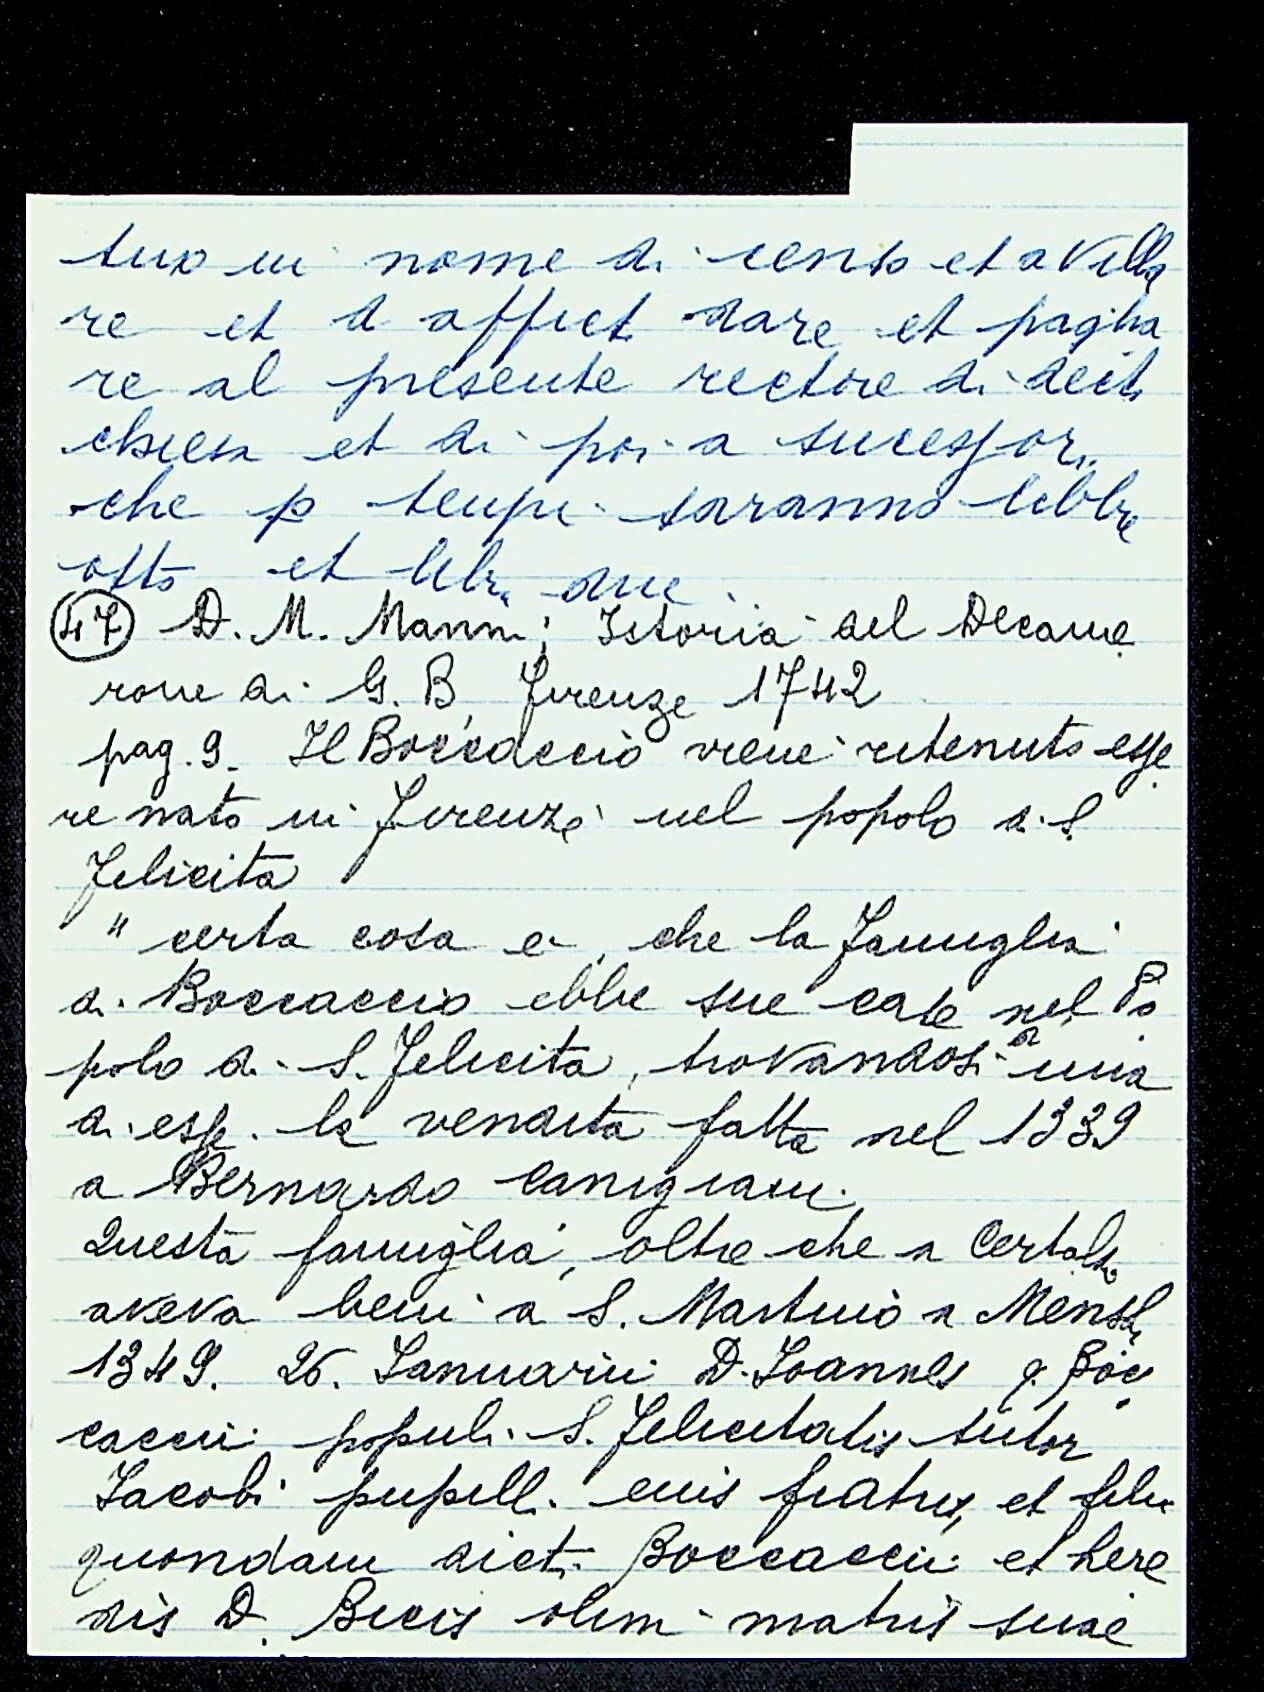 tuo in nome di censo et a Vella
re et d affict dare et pagha
re al presente rectore di decta
chiesa et di poi a sucessori
che p tempi saranno libbre
otto et libr. due.
(47) D. M. Manni; Istoria del Decame
rone di G. B. Firenze 1742
pag. 9. Il Boccaccio viene ritenuto esse
re nato in Firenze nel popolo di S.
Felicita
" certa cosa e, che la famiglia
di Boccaccio ebbe sue case nel Po
polo di S. Felicita, trovandosi di una
di esse la vendita fatta nel 1339
a Bernardo Canigiani.
Questa famiglia, oltre che a Certaldo
aveva beni a S. Martino a Mensola
1349. 26. Ianuarii D. Ioannes q. Boc
caccii populi S. Felicitatis tutor
Iacobi pupilli eius fratris, et filii
quondam dicti Boccaccii et here
dis D. Bicis olim matris suae